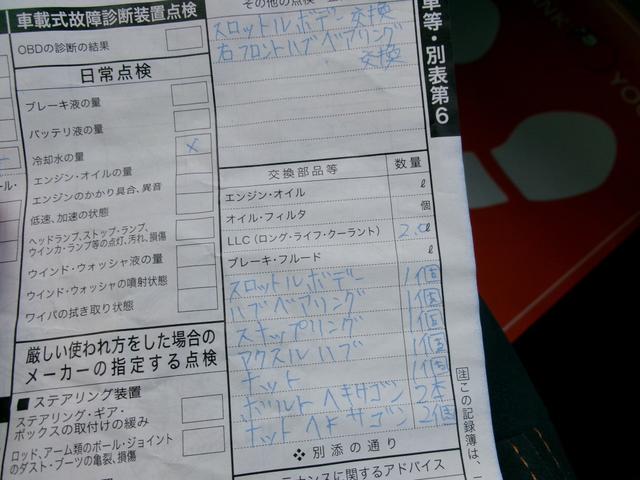 車載式故障診断装置点検
OBDの診断の結果
日常点検
ブレーキ液の量
バッテリ液の量
冷却水の量 ×
エンジン・オイルの量
エンジンのかかり具合、異音
低速、加速の状態
ヘッドランプ、ストップ・ランプ、
ウインカ・ランプ等の点灯、汚れ、損傷
ウインド・ウォッシャ液の量
ウインド・ウォッシャの噴射状態
ワイパの拭き取り状態
厳しい使われ方をした場合の
メーカーの指定する点検
■ ステアリング装置
ステアリング・ギア・
ボックスの取付けの緩み
ロッド、アーム類のボール・ジョイント
のダスト・ブーツの亀裂、損傷
その他の点検
スロットルボデー 交換
右フロントハブベアリング
交換
交換部品等 数量
エンジン・オイル ℓ
オイル・フィルタ 個
LLC（ロング・ライフ・クーラント） 2.0ℓ
ブレーキ・フルード ℓ
スロットルボデー 1個
ハブベアリング 1個
スナップリング 1個
アクスルハブ 1個
ナット 1個
ボルトヘキサゴン 2本
ナットヘキサゴン 2個
❖ 別添の通り
ナンスに関するアドバイス
車等・別表第6
注 この記録簿は、